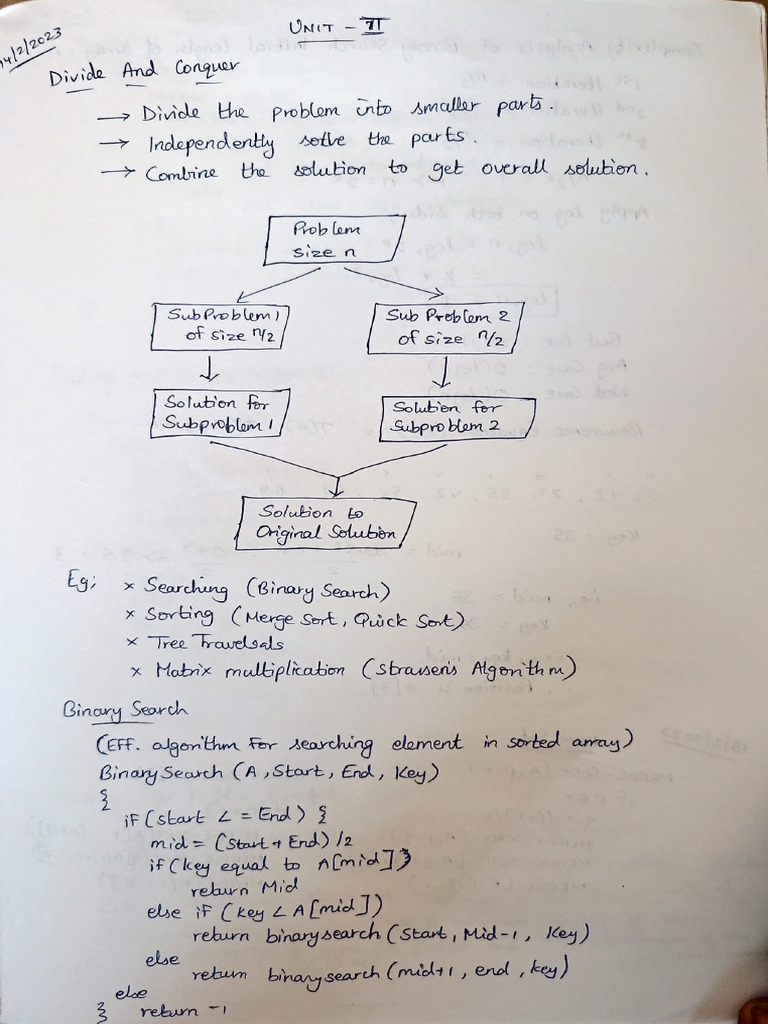 14/2/2023
UNIT - II
Divide And Conquer
→ Divide the problem into smaller parts.
→ Independently solve the parts.
→ Combine the solution to get overall solution.
Problem
size n
SubProblem 1
of size n/2
Sub Problem 2
of size n/2
Solution for
Subproblem 1
Solution for
Subproblem 2
Solution to
Original Solution
Eg: × Searching (Binary Search)
× Sorting (Merge Sort, Quick Sort)
× Tree Travelsals
× Matrix multiplication (Strassen's Algorithm)
Binary Search
(EFF. algorithm for searching element in sorted array)
Binary Search (A, Start, End, Key)
{
if (start <= End) {
mid = (Start + End) /2
if (key equal to A[mid])
return Mid
else if (key < A[mid])
return binarysearch (Start, Mid-1, Key)
else
return binarysearch (mid+1, end, key)
else
} return -1